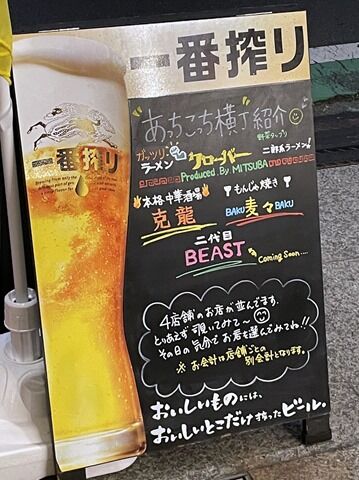 一番搾り
一番搾り
あっちこっち横丁紹介
野菜タップリ
ガッツリ
ラーメン
クローバー
二郎系ラーメン
Produced By MITSUBA
本格中華酒場
克龍
もんじゃ焼き
BAKU麦々BAKU
二代目
BEAST
Coming Soon....
4店舗のお店が並んでます。
とりあえず覗いてみて〜
その日の気分でお店を選んでみてね!!
※お会計は店舗ごとの
別会計となります。
おいしいものには、
おいしいとこだけ搾ったビール。